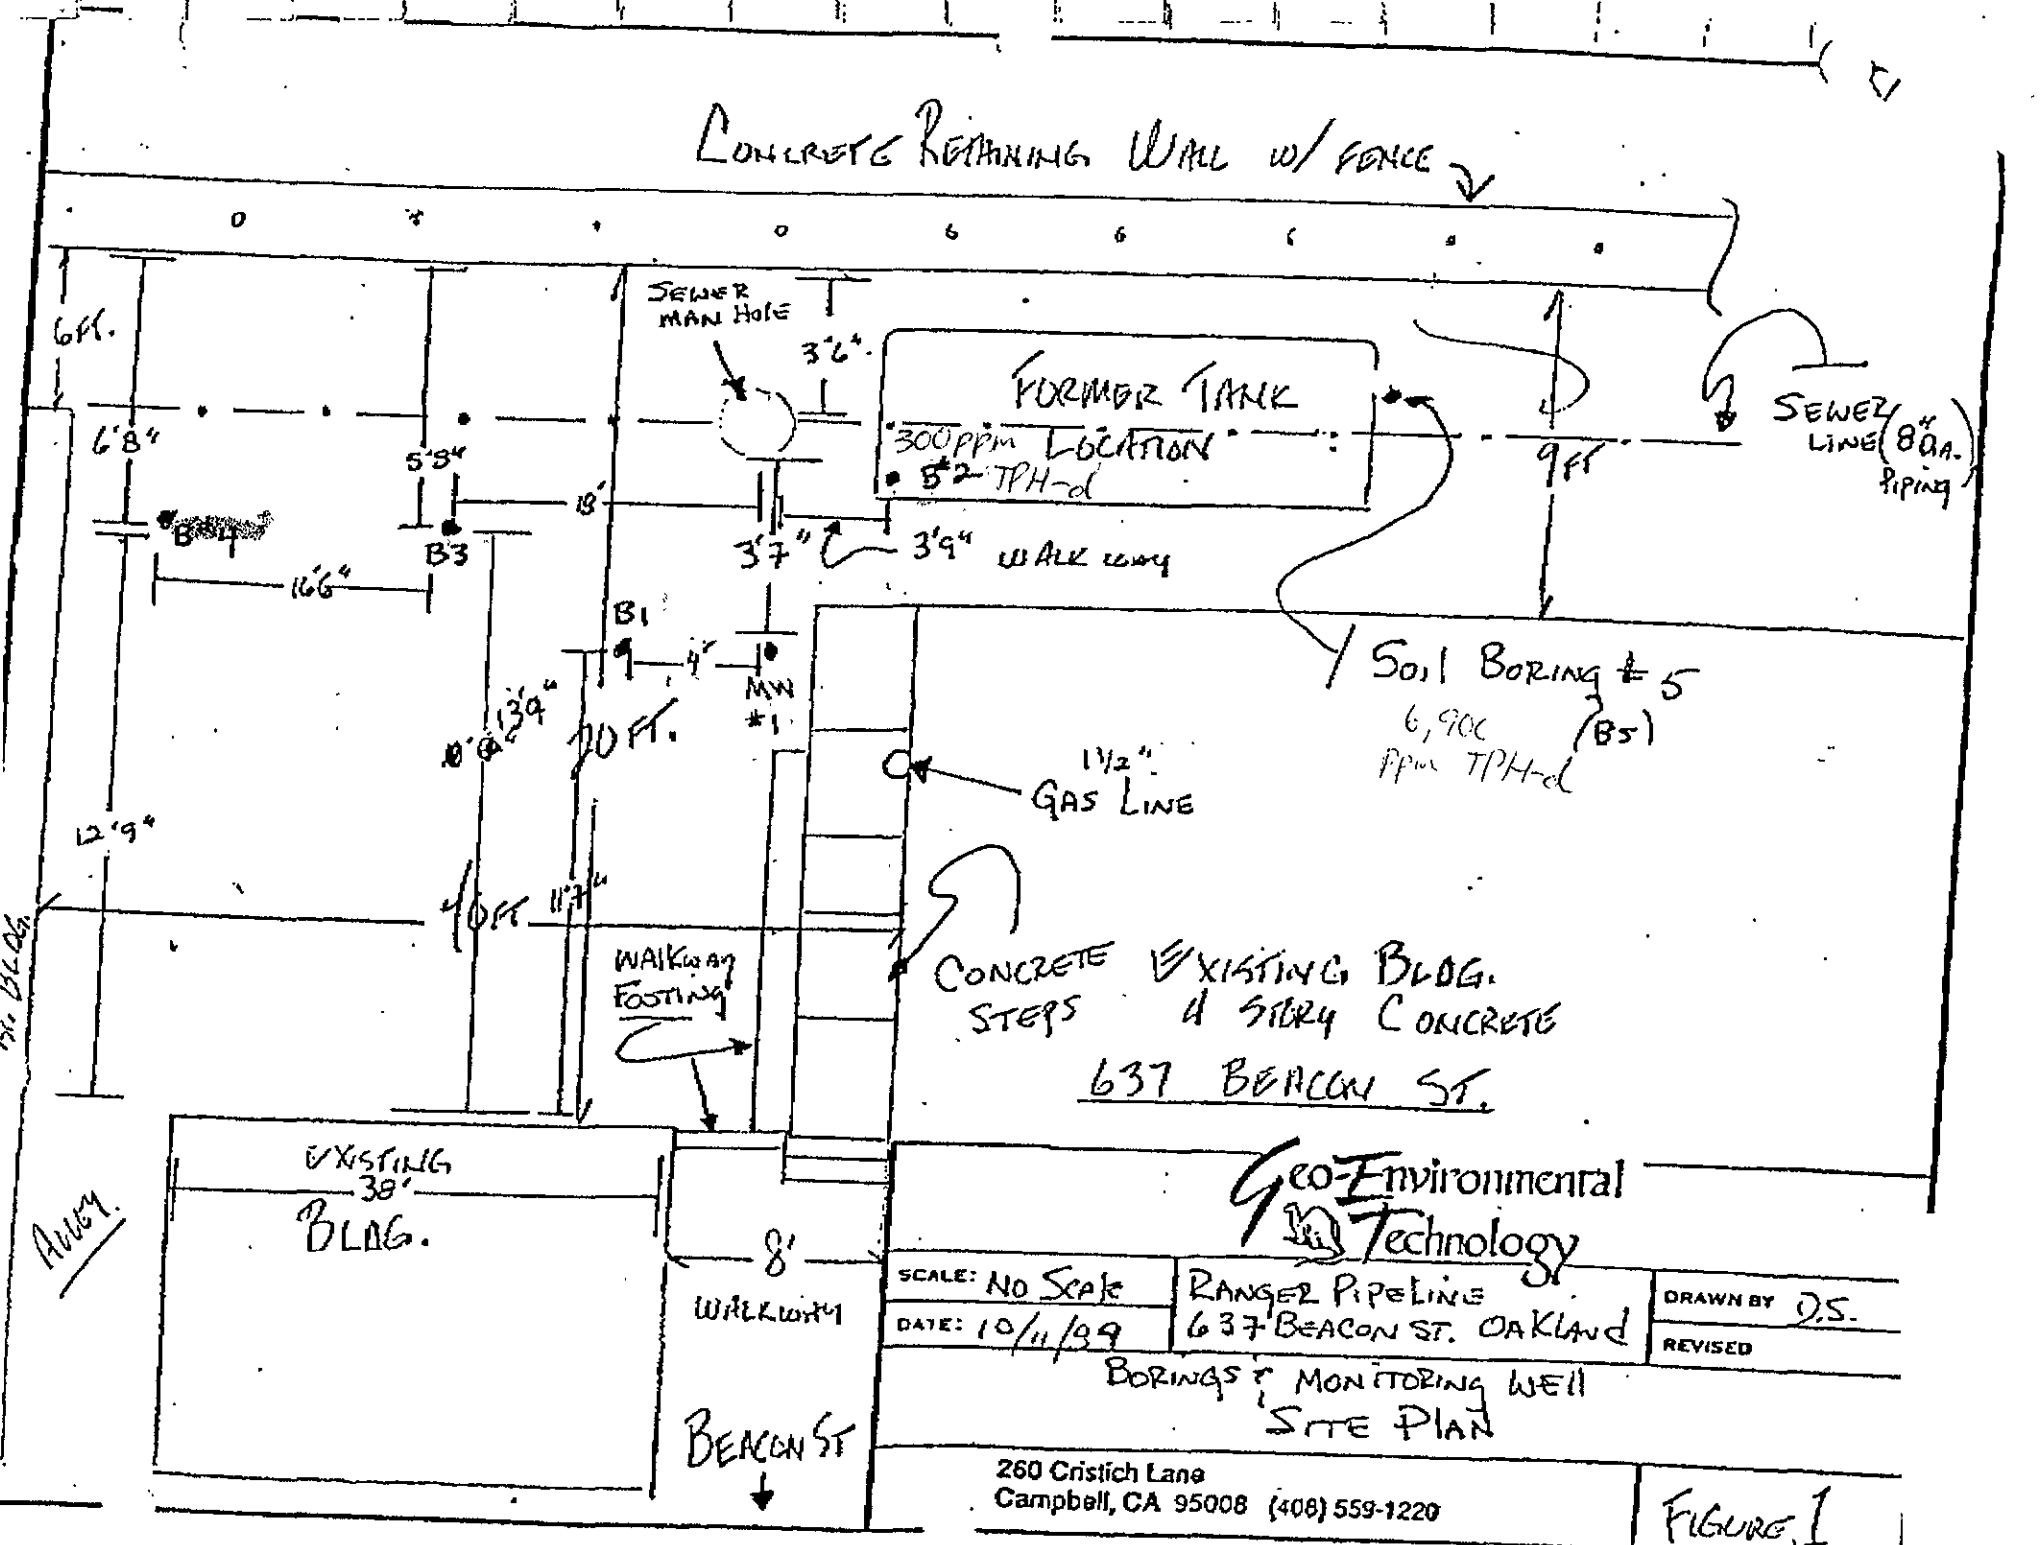 CONCRETE RETAINING WALL W/ FENCE
SEWER
MAN HOLE
6 FT.
3'6"
FORMER TANK
LOCATION
300 ppm
B#2 TPH-d
SEWER
LINE (8" DIA.
PIPING)
6'8"
5'8"
9 FT
18'
B#4
B3
3'7"
3'9" WALKWAY
16'6"
B1
4'
MW
#1
SOIL BORING # 5
(B5)
6,900
ppm TPH-d
13'9"
20 FT.
1 1/2"
GAS LINE
12'9"
40 FT
11'7"
WALKWAY
FOOTING
CONCRETE
STEPS
EXISTING BLDG.
4 STORY CONCRETE
637 BEACON ST.
BLDG.
ALLEY.
EXISTING
38'
BLDG.
8'
WALKWAY
BEACON ST
Geo-Environmental
Technology
SCALE: NO SCALE
DATE: 10/11/99
RANGER PIPELINE
637 BEACON ST. OAKLAND
DRAWN BY D.S.
REVISED
BORINGS & MONITORING WELL
SITE PLAN
260 Cristich Lane
Campbell, CA 95008 (408) 559-1220
FIGURE. 1